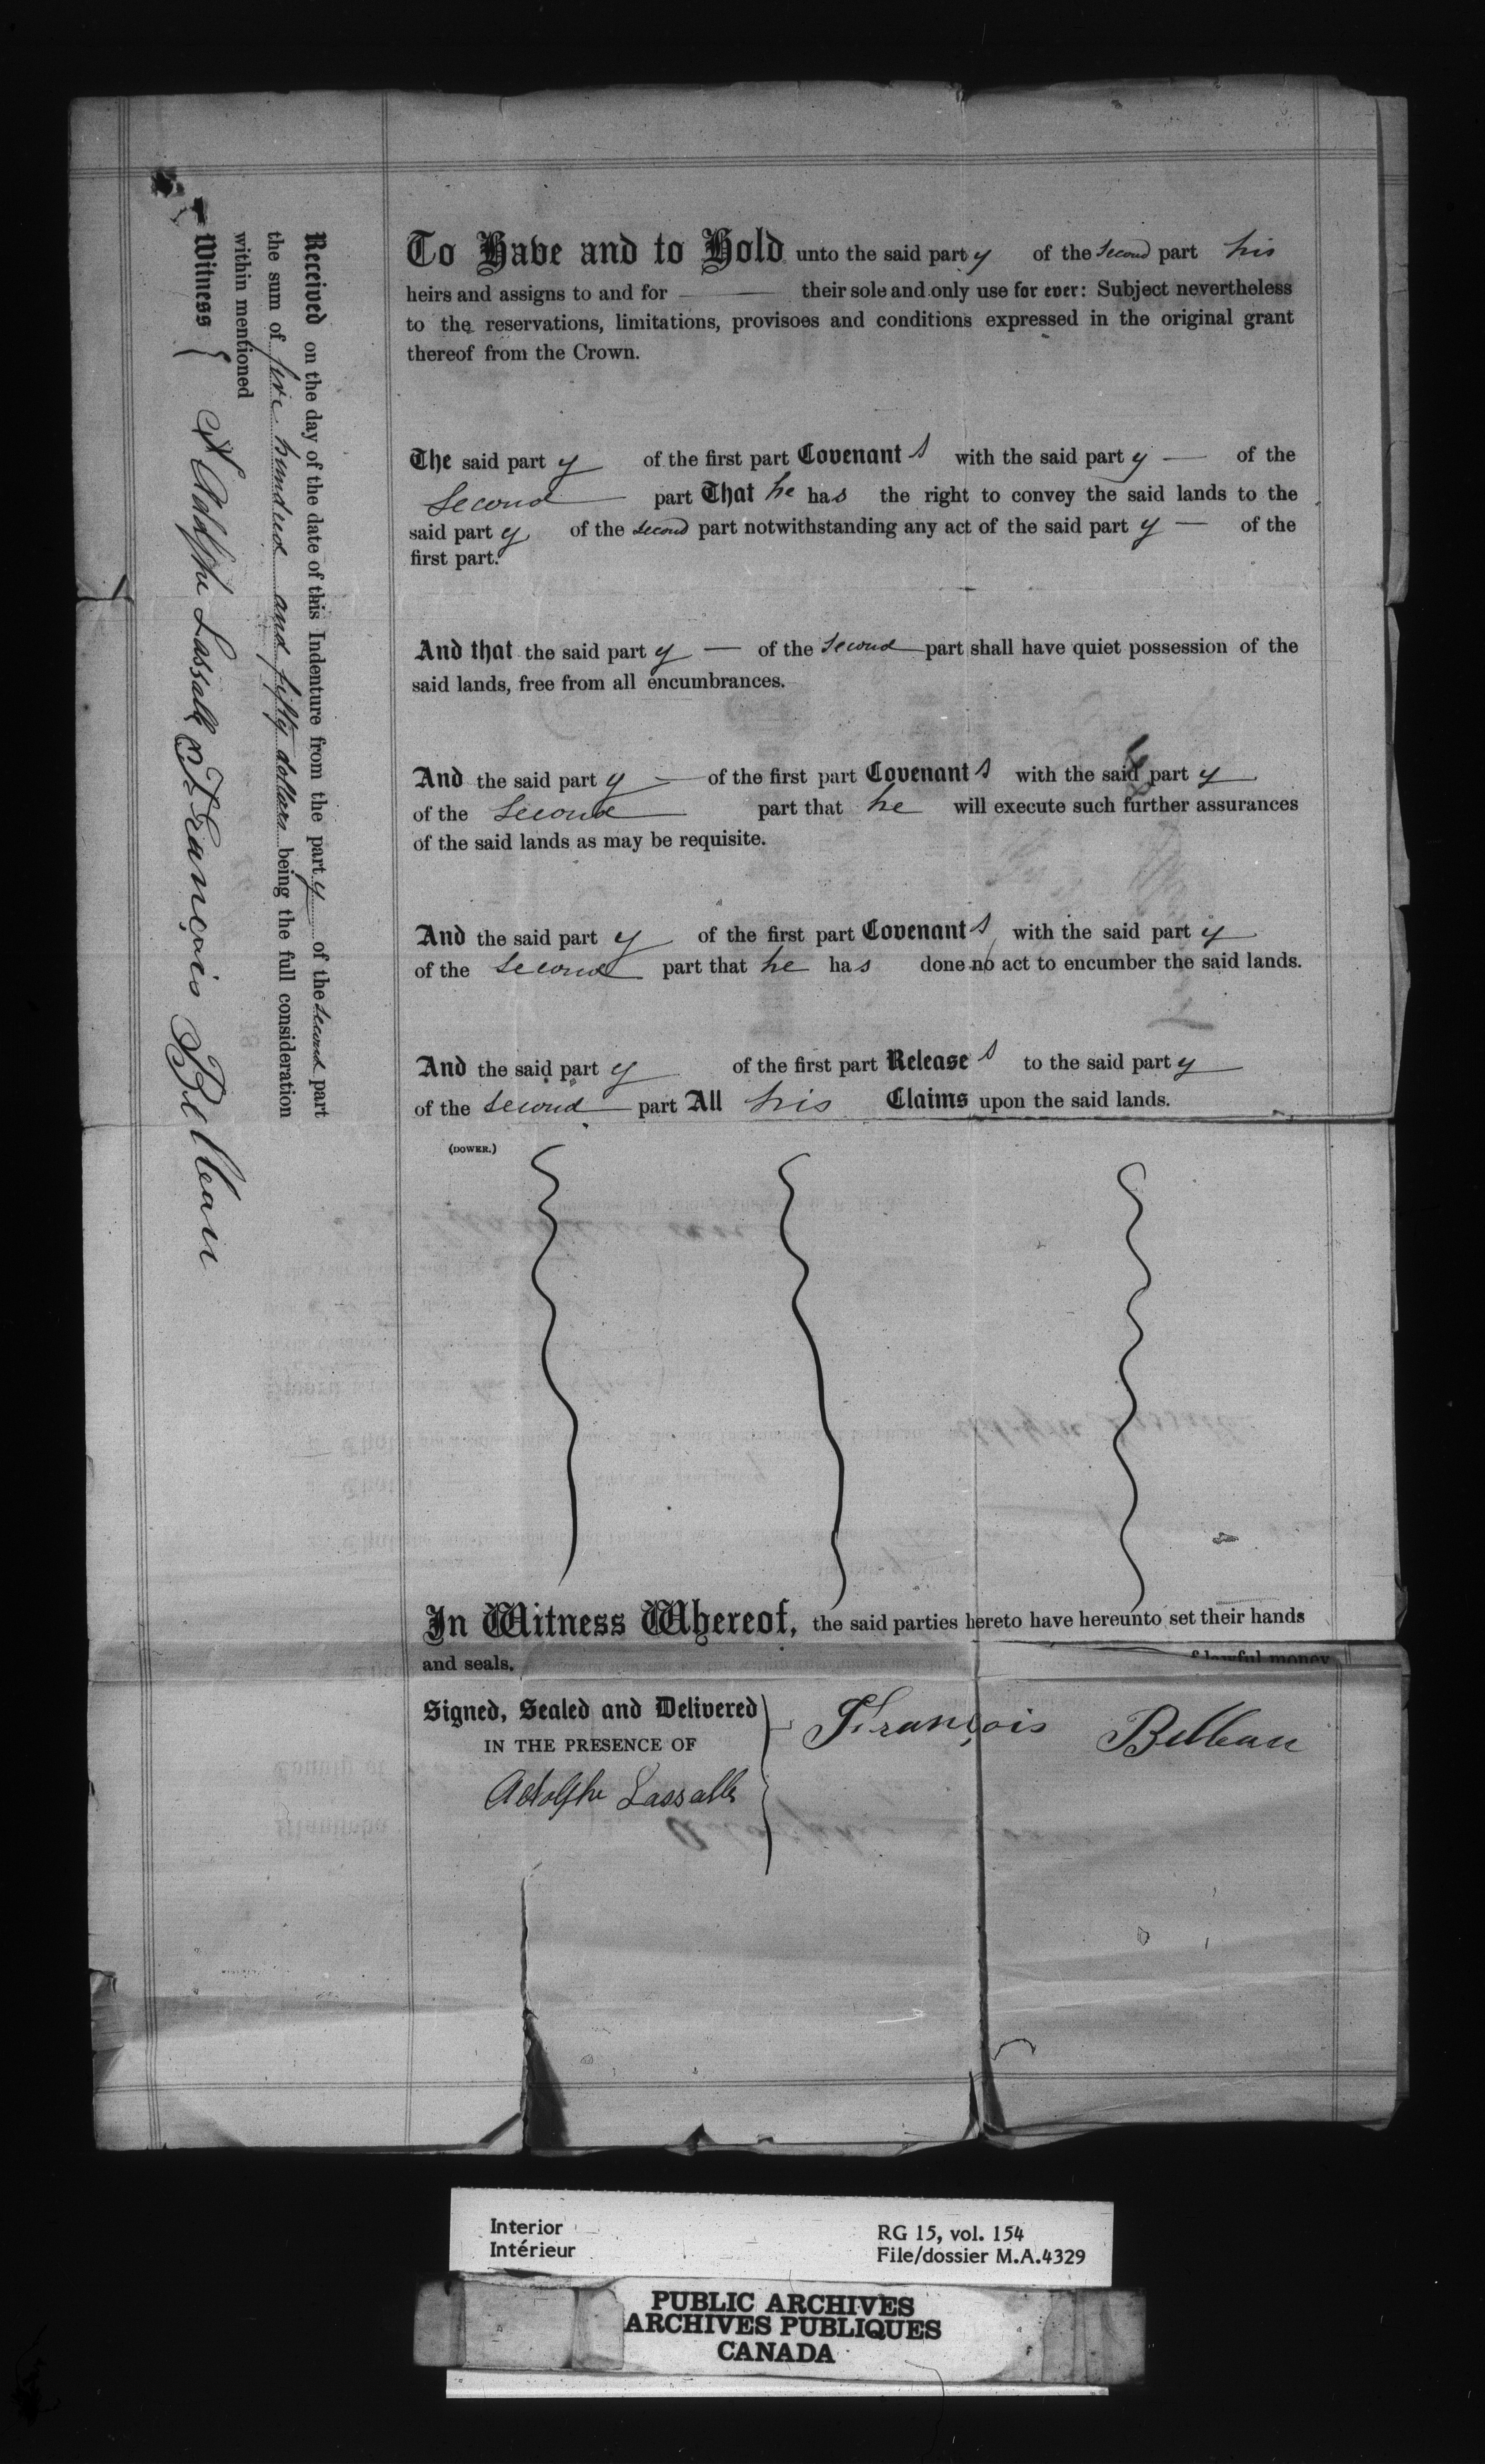 To Have and to Hold unto the said party of the second part his
heirs and assigns to and for their sole and only use for ever: Subject nevertheless
to the reservations, limitations, provisoes and conditions expressed in the original grant
thereof from the Crown.
The said party of the first part Covenants with the said party — of the
Second part That he has the right to convey the said lands to the
said party of the second part notwithstanding any act of the said party — of the
first part.
And that the said party — of the Second part shall have quiet possession of the
said lands, free from all encumbrances.
And the said party — of the first part Covenants with the said party
of the Second part that he will execute such further assurances
of the said lands as may be requisite.
And the said party of the first part Covenants with the said party
of the Second part that he has done no act to encumber the said lands.
And the said party of the first part Releases to the said party
of the Second part All his Claims upon the said lands.
(DOWER.)
In Witness Whereof, the said parties hereto have hereunto set their hands
and seals.
of lawful money
Signed, Sealed and Delivered
IN THE PRESENCE OF
Adolphe Lassalle
François Belleau
Received on the day of the date of this Indenture from the party of the second part
the sum of five hundred and fifty dollars being the full consideration
within mentioned
Witness
Adolphe Lassalle François Belleau
Interior
Intérieur
RG 15, vol. 154
File/dossier M.A.4329
PUBLIC ARCHIVES
ARCHIVES PUBLIQUES
CANADA